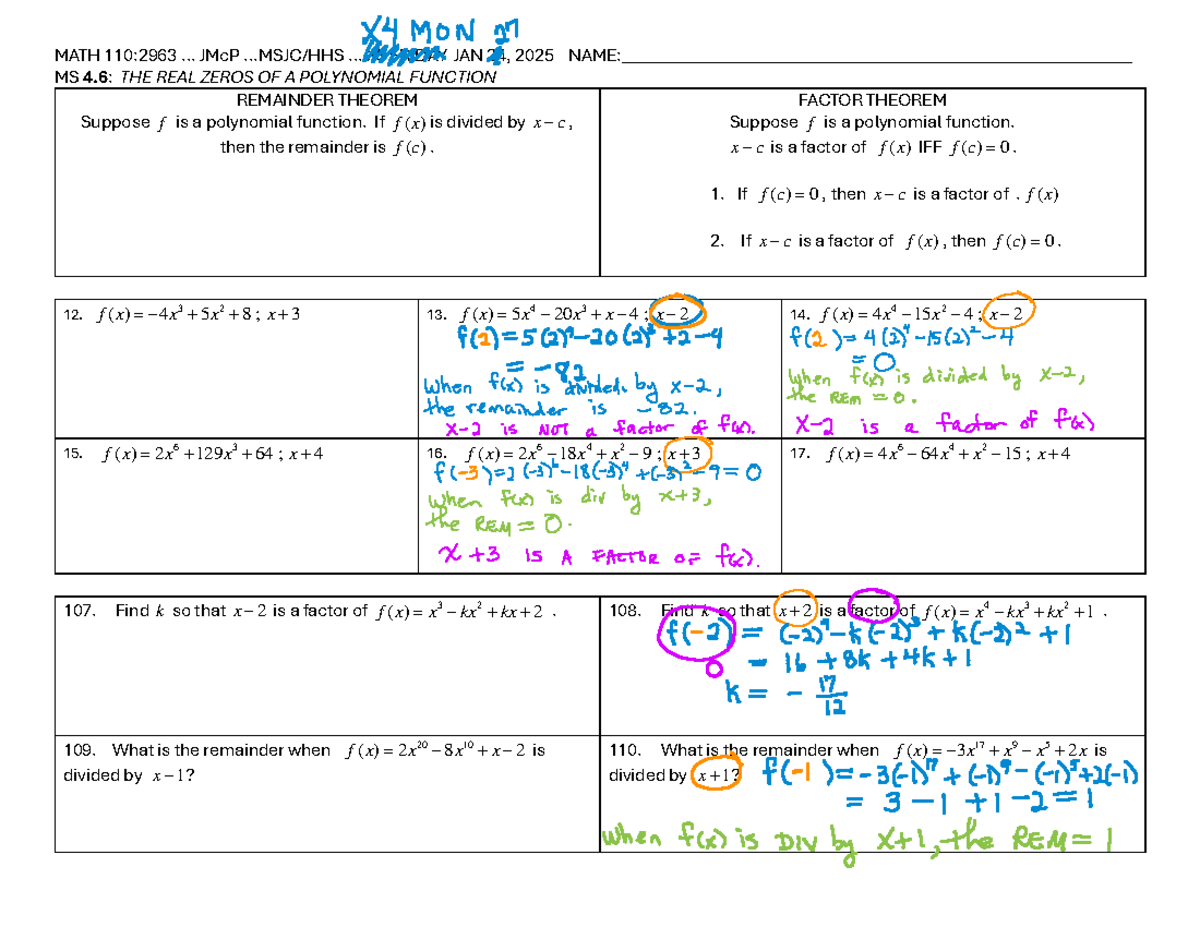 X4 MON 27
MATH 110:2963 ... JMcP ...MSJC/HHS ... JAN 24, 2025 NAME:
MS 4.6: THE REAL ZEROS OF A POLYNOMIAL FUNCTION
REMAINDER THEOREM
Suppose f is a polynomial function. If f(x) is divided by x−c,
then the remainder is f(c).
FACTOR THEOREM
Suppose f is a polynomial function.
x−c is a factor of f(x) IFF f(c)=0.
1. If f(c)=0, then x−c is a factor of . f(x)
2. If x−c is a factor of f(x), then f(c)=0.
12. f(x)=−4x³+5x²+8; x+3
13. f(x)=5x⁴−20x³+x−4; x−2
f(2)=5(2)⁴−20(2)³+2−4
= −82
When f(x) is divided by x−2,
the remainder is −82.
x−2 is NOT a factor of f(x).
14. f(x)=4x⁴−15x²−4; x−2
f(2)=4(2)⁴−15(2)²−4
= 0
When f(x) is divided by x−2,
the REM = 0.
x−2 is a factor of f(x)
15. f(x)=2x⁶+129x³+64; x+4
16. f(x)=2x⁶−18x⁴+x²−9; x+3
f(−3)=2(−3)⁶−18(−3)⁴+(−3)²−9=0
When f(x) is div by x+3,
the REM = 0.
x+3 IS A FACTOR OF f(x).
17. f(x)=4x⁶−64x⁴+x²−15; x+4
107. Find k so that x−2 is a factor of f(x)=x³−kx²+kx+2 .
108. Find k so that x+2 is a factor of f(x)=x⁴−kx³+kx²+1 .
f(−2) = (−2)⁴−k(−2)³+k(−2)²+1
0 = 16+8k+4k+1
k = −17/12
109. What is the remainder when f(x)=2x²⁰−8x¹⁰+x−2 is
divided by x−1?
110. What is the remainder when f(x)=−3x¹⁷+x⁹−x⁵+2x is
divided by x+1? f(−1)=−3(−1)¹⁷+(−1)⁹−(−1)⁵+2(−1)
= 3−1+1−2=1
When f(x) is DIV by x+1, the REM = 1